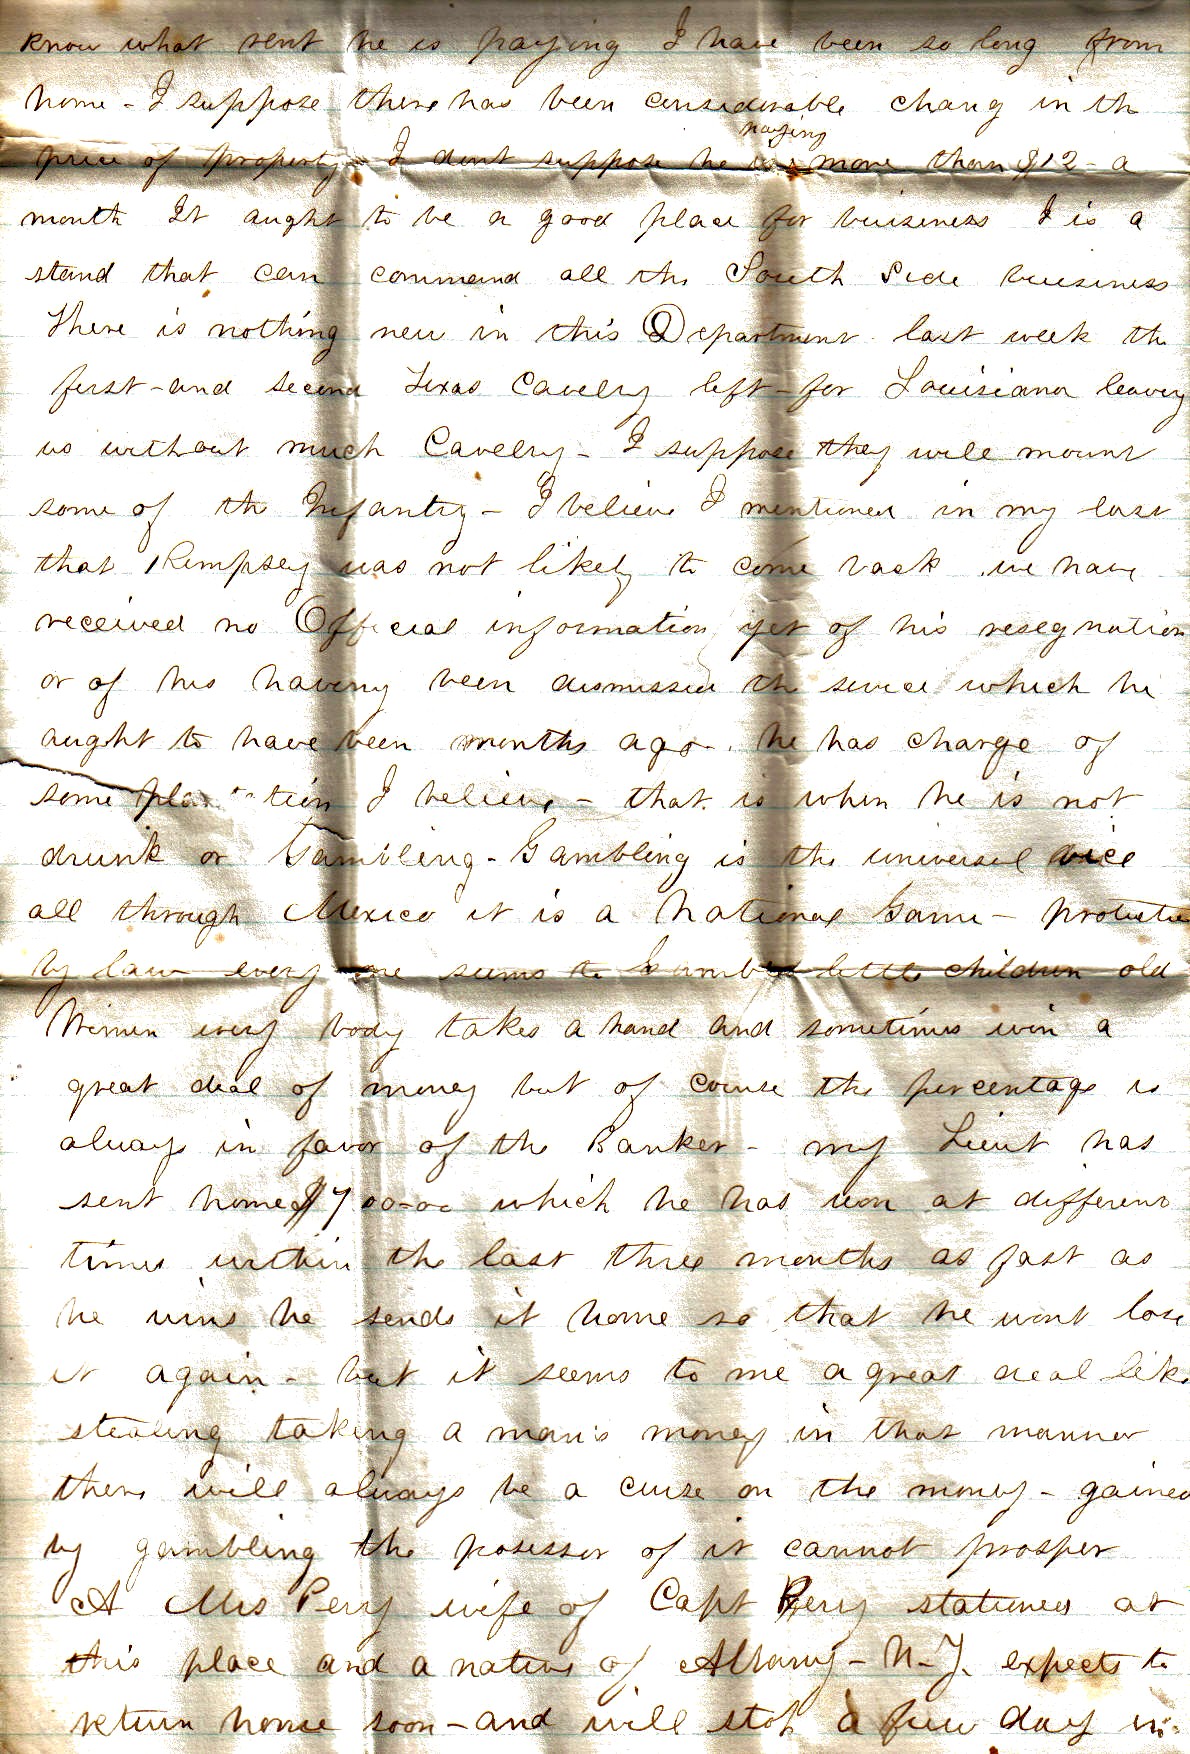 know what rent he is paying I have been so long from
home - I suppose there has been considerable chang in th
paying
price of property - I dont suppose he was more than $12 - a
month It aught to be a good place for buiseness I is a
stand that can command all the South Side buisiness
There is nothing new in this Department last week the
first - and second Texas Cavelry left - for Louisiana leaveing
us without much Cavelry - I suppose they will mount
some of the Infantry - I believe I mentioned in my last
that was not likely to come back we have
received no Official information yet of his resegnation
or of his having been dismissed the sevice which he
aught to have been months ago - he has charge of
some I believe - that is when he is not
drunk or Gambling - Gambling is the universel vice
all through Mexico it is a National Game - protected
by law every one seems to Gamble little children old
Wimen every body takes a hand and sometimes win a
great deal of money but of course the percentage is
always in favor of the Banker - my Lieut has
sent home $700=00 which he has won at different
times within the last three months as fast as
he wins he sends it home so that he wont lose
it again - but it seems to me a great deal like
stealing taking a man's money in that manner
there will always be a curse on the money - gained
by gambling the posessor of it cannot prosper
A Mrs Perry wife of Capt Perry stationed at
this place and a native of Albany - N. Y. expects to
return home soon - and will stop a few day in